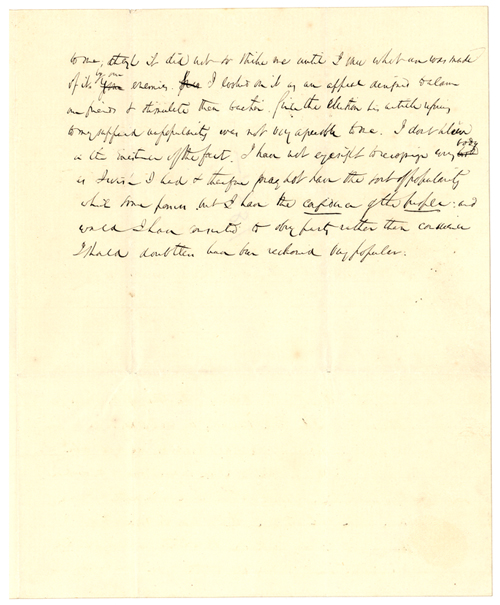 to me, tho' it did not so strike me until I saw what use was made
of it by our enemies. I looked on it as an appeal designed to alarm
our friends & stimulate them to action. Since the election his article
to my supposed unpopularity was not very agreeable to me. I don't believe
in the existence of the fact. I have not eyesight to recognize every body
as I wish I had & therefore may not have the sort of popularity
which some possess but I have the confidence of the people; and
would I have consented to obey party rather than conscience
I should doubtless have been reckoned very popular.